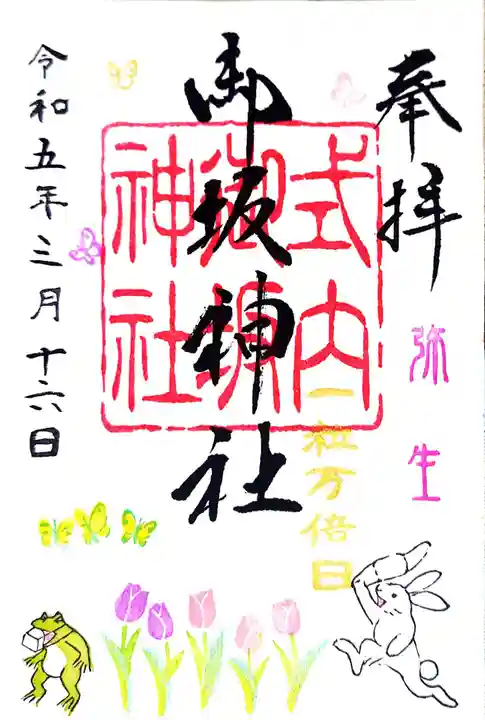 奉拝
弥生
一粒万倍日
御坂神社
式内
御坂
神社
令和五年三月十六日